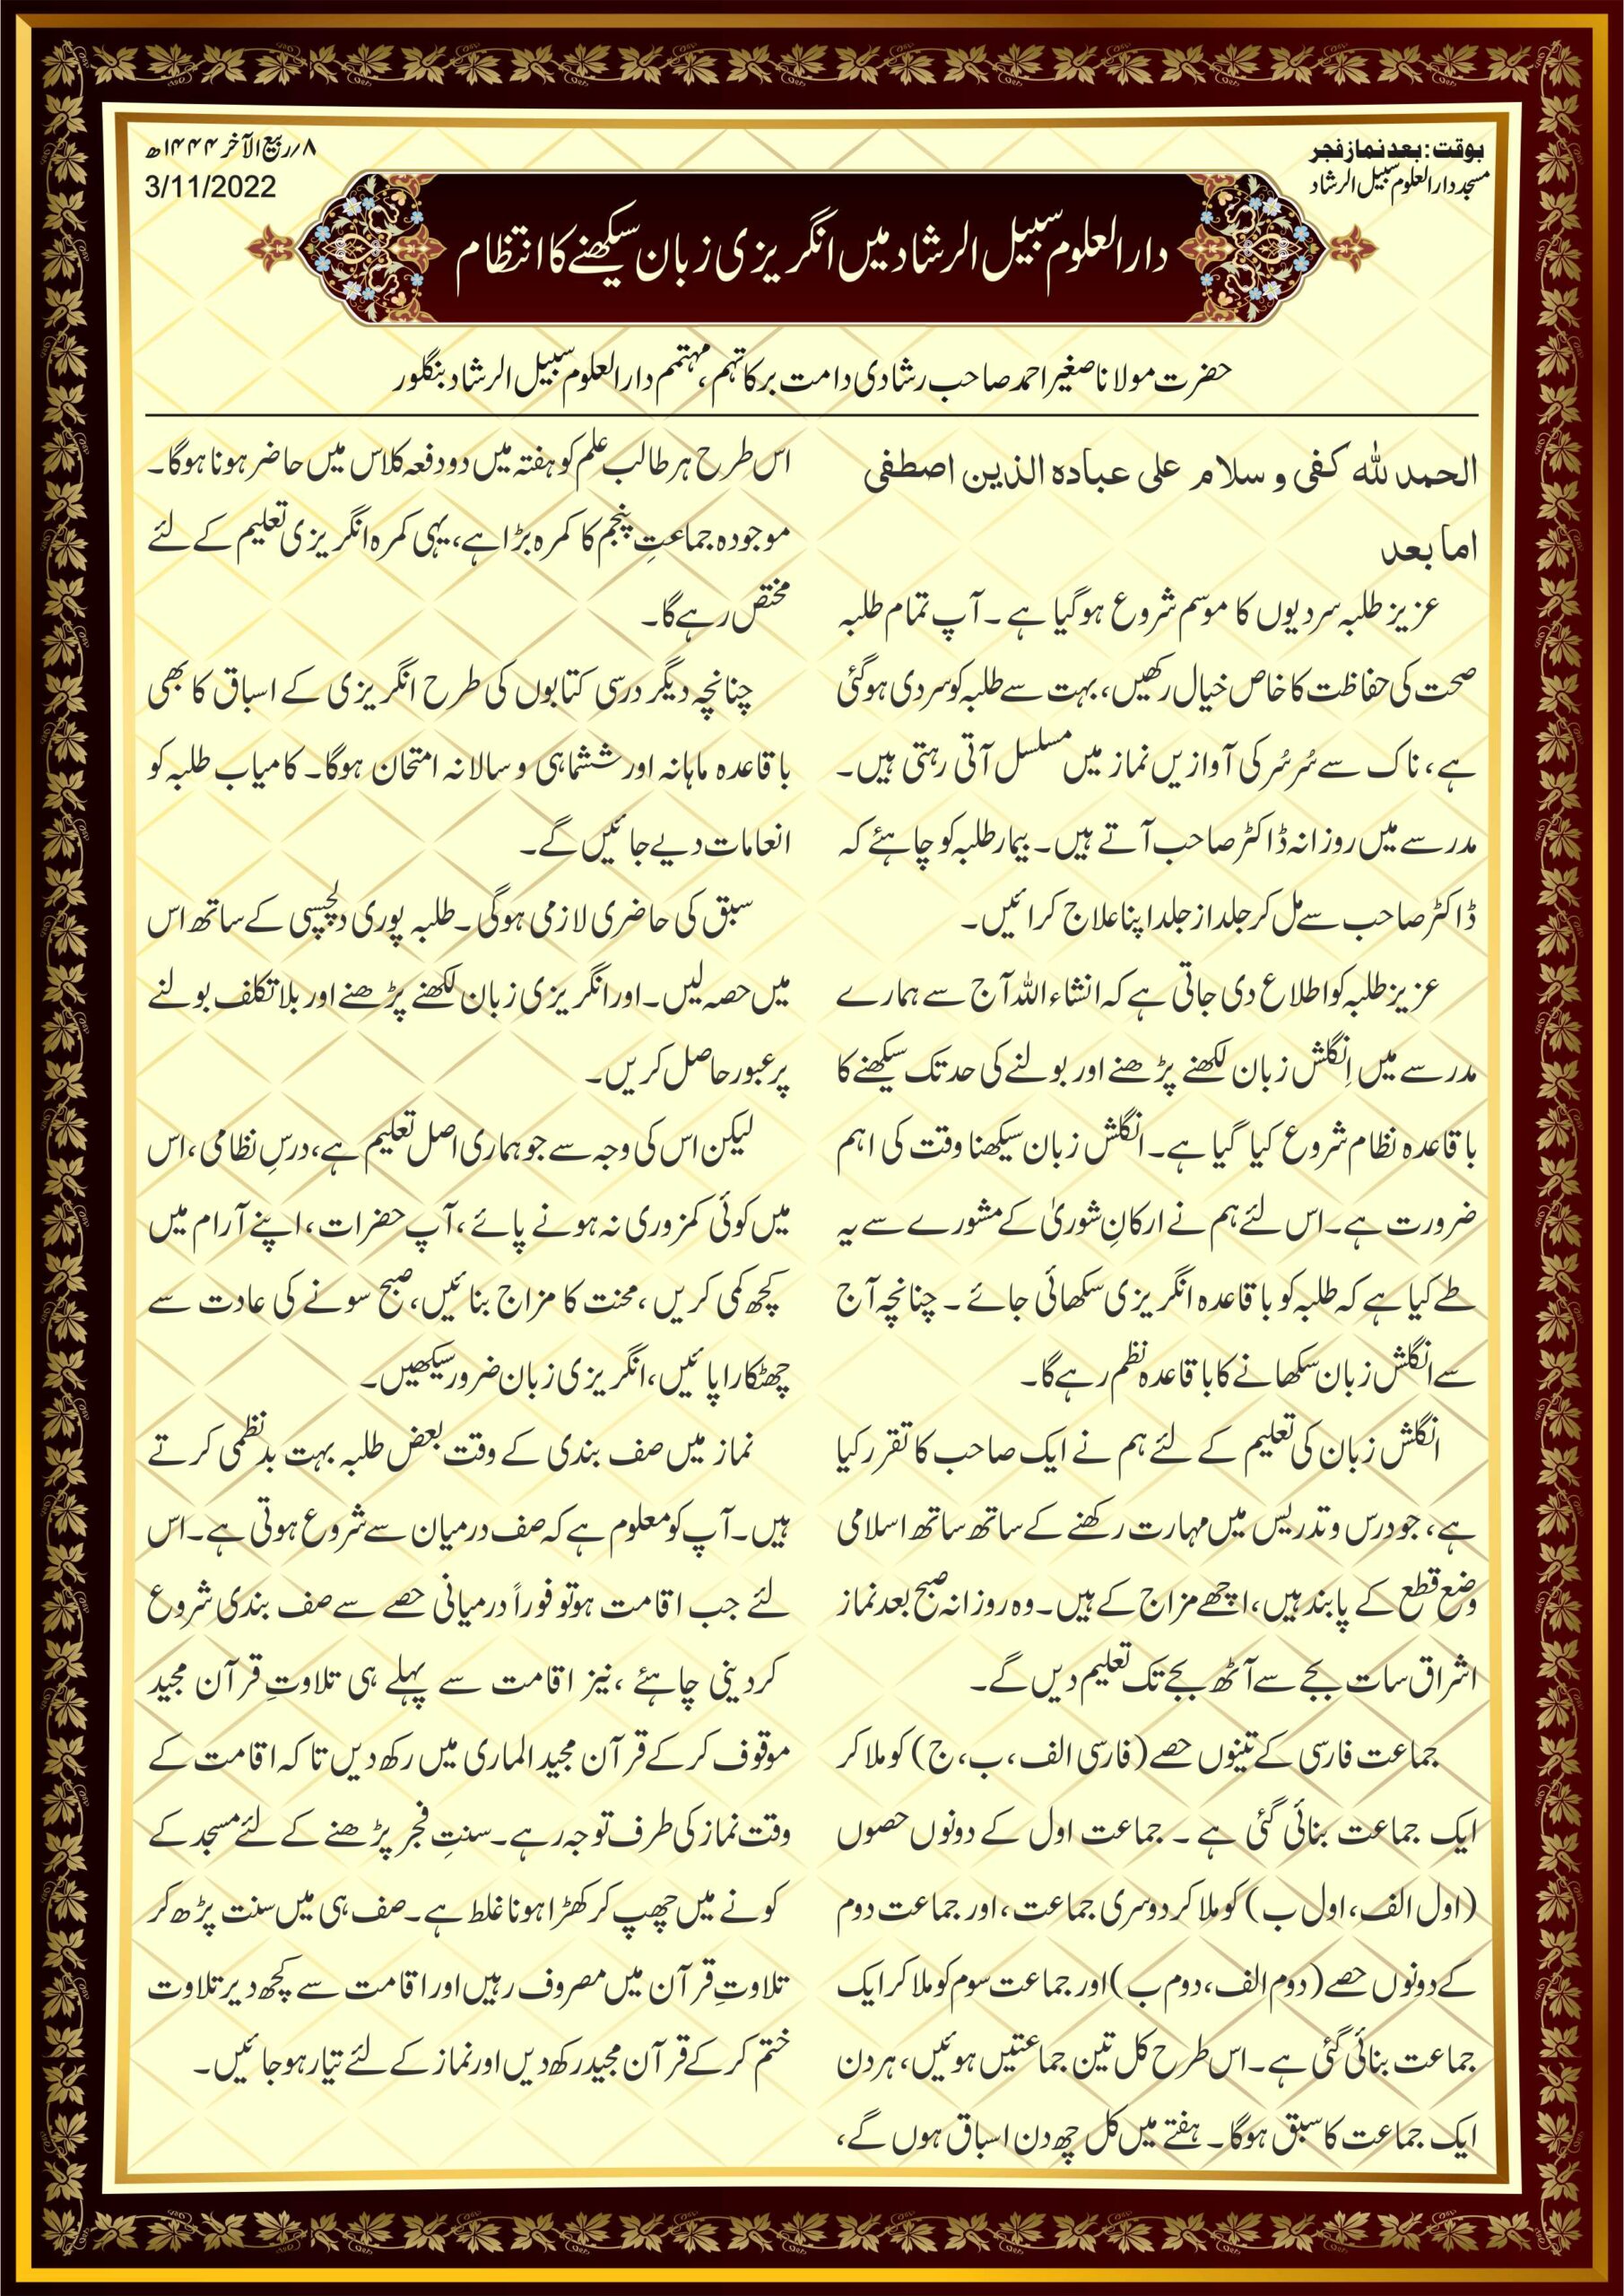 بوقت: بعد نماز فجر
مسجد دارالعلوم سبیل الرشاد
۸/ربیع الآخر ۱۴۴۴ھ
3/11/2022
دارالعلوم سبیل الرشاد میں انگریزی زبان سیکھنے کا انتظام
حضرت مولانا صغیر احمد صاحب رشادی دامت برکاتہم، مہتمم دارالعلوم سبیل الرشاد بنگلور
الحمد للہ کفی و سلام علی عبادہ الذین اصطفی
اما بعد
عزیز طلبہ سردیوں کا موسم شروع ہوگیا ہے۔ آپ تمام طلبہ
صحت کی حفاظت کا خاص خیال رکھیں، بہت سے طلبہ کو سردی ہوگئی
ہے، ناک سے سُرسُر کی آوازیں نماز میں مسلسل آتی رہتی ہیں۔
مدرسے میں روزانہ ڈاکٹر صاحب آتے ہیں۔ بیمار طلبہ کو چاہئے کہ
ڈاکٹر صاحب سے مل کر جلد از جلد اپنا علاج کرائیں۔
عزیز طلبہ کو اطلاع دی جاتی ہے کہ انشاء اللہ آج سے ہمارے
مدرسے میں اِنگلش زبان لکھنے پڑھنے اور بولنے کی حد تک سیکھنے کا
باقاعدہ نظام شروع کیا گیا ہے۔ انگلش زبان سیکھنا وقت کی اہم
ضرورت ہے۔ اس لئے ہم نے ارکانِ شوریٰ کے مشورے سے یہ
طے کیا ہے کہ طلبہ کو باقاعدہ انگریزی سکھائی جائے۔ چنانچہ آج
سے انگلش زبان سکھانے کا باقاعدہ نظم رہے گا۔
انگلش زبان کی تعلیم کے لئے ہم نے ایک صاحب کا تقرر کیا
ہے، جو درس و تدریس میں مہارت رکھنے کے ساتھ ساتھ اسلامی
وضع قطع کے پابند ہیں، اچھے مزاج کے ہیں۔ وہ روزانہ صبح بعد نماز
اشراق سات بجے سے آٹھ بجے تک تعلیم دیں گے۔
جماعت فارسی کے تینوں حصے (فارسی الف، ب، ج) کو ملا کر
ایک جماعت بنائی گئی ہے ۔ جماعت اول کے دونوں حصوں
(اول الف، اول ب) کو ملا کر دوسری جماعت، اور جماعت دوم
کے دونوں حصے (دوم الف، دوم ب) اور جماعت سوم کو ملا کر ایک
جماعت بنائی گئی ہے۔ اس طرح کل تین جماعتیں ہوئیں، ہر دن
ایک جماعت کا سبق ہوگا۔ ہفتے میں کل چھ دن اسباق ہوں گے،
اس طرح ہر طالب علم کو ہفتہ میں دو دفعہ کلاس میں حاضر ہونا ہوگا۔
موجودہ جماعتِ پنجم کا کمرہ بڑا ہے، یہی کمرہ انگریزی تعلیم کے لئے
مختص رہے گا۔
چنانچہ دیگر درسی کتابوں کی طرح انگریزی کے اسباق کا بھی
باقاعدہ ماہانہ اور ششماہی و سالانہ امتحان ہوگا۔ کامیاب طلبہ کو
انعامات دیے جائیں گے۔
سبق کی حاضری لازمی ہوگی۔ طلبہ پوری دلچسپی کے ساتھ اس
میں حصہ لیں۔ اور انگریزی زبان لکھنے پڑھنے اور بلا تکلف بولنے
پر عبور حاصل کریں۔
لیکن اس کی وجہ سے جو ہماری اصل تعلیم ہے، درسِ نظامی، اس
میں کوئی کمزوری نہ ہونے پائے، آپ حضرات، اپنے آرام میں
کچھ کمی کریں، محنت کا مزاج بنائیں، صبح سونے کی عادت سے
چھٹکارا پائیں، انگریزی زبان ضرور سیکھیں۔
نماز میں صف بندی کے وقت بعض طلبہ بہت بدنظمی کرتے
ہیں۔ آپ کو معلوم ہے کہ صف درمیان سے شروع ہوتی ہے۔ اس
لئے جب اقامت ہو تو فوراً درمیانی حصے سے صف بندی شروع
کردینی چاہئے ، نیز اقامت سے پہلے ہی تلاوتِ قرآن مجید
موقوف کرکے قرآن مجید الماری میں رکھ دیں تاکہ اقامت کے
وقت نماز کی طرف توجہ رہے۔ سنتِ فجر پڑھنے کے لئے مسجد کے
کونے میں چھپ کر کھڑا ہونا غلط ہے۔ صف ہی میں سنت پڑھ کر
تلاوتِ قرآن میں مصروف رہیں اور اقامت سے کچھ دیر تلاوت
ختم کرکے قرآن مجید رکھ دیں اور نماز کے لئے تیار ہوجائیں۔